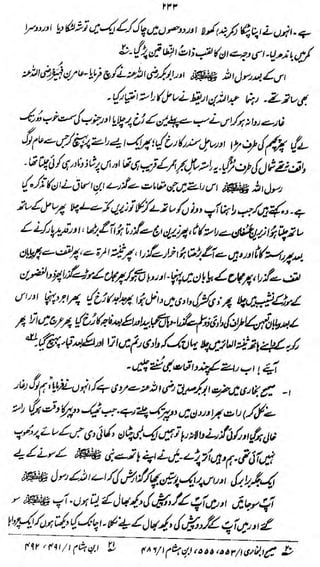 ۲۳۳
ہے۔ انہوں نے اپنا پٹکا (کمربند) کھولا اور دو حصوں میں چاک کرکے ایک میں توشہ لٹکا دیا اور دوسرا
کمر میں باندھ لیا۔ اسی وجہ سے ان کا لقب ذات النطاقین پڑ گیا۔
اس کے بعد رسول اللہ ﷺ اور ابوبکر رضی اللہ عنہ نے کوچ فرمایا۔ عامر بن فہیرہ رضی اللہ عنہ
بھی ساتھ تھے۔ رہنما عبداللہ بن اریقط نے ساحل کا راستہ اختیار کیا۔
غار سے روانہ ہوکر اس نے سب سے پہلے یمن کے رخ پر چلایا اور جنوب کی سمت خوب دور تک
لے گیا پھر پچھم کی طرف مڑا اور ساحل سمندر کا رخ کیا۔ پھر ایک ایسے راستے پر پہنچ کر جس سے عام لوگ
واقف نہ تھے شمال کی طرف مڑ گیا۔ یہ راستہ ساحل بحر احمر کے قریب ہی تھا اور اس پر شاذ و نادر ہی کوئی چلتا تھا۔
رسول اللہ ﷺ اس راستے میں جن مقامات سے گذرے ابن اسحاق نے ان کا تذکرہ کیا
ہے۔ وہ کہتے ہیں کہ جب راہنما آپ دونوں کو ساتھ لے کر نکلا تو زیریں مکہ سے لے چلا پھر ساحل کے ساتھ
ساتھ چلتا ہوا زیریں عسفان سے راستہ کاٹا، پھر زیریں امج سے گذرتا ہوا آگے بڑھا اور قدید پار کرنے کے
بعد پھر راستہ کاٹا اور وہیں سے آگے بڑھتا ہوا خرار سے گذرا، پھر ثنیۃ المرہ سے، پھر لقف سے پھر بیابان
لقف سے گذرا، پھر مجاح کے بیابان میں پہنچا اور وہاں سے پھر مجاح کے موڑ سے گذرا پھر ذی الغضوین
کے موڑ کے نشیب میں چلا پھر ذی کشر کی وادی میں داخل ہوا پھر جداجد کا رخ کیا پھر اجرد پہنچا اور اس
آیئے! اب راستے کے چند واقعات بھی سنتے چلیں۔
۱۔ صحیح بخاری میں حضرت ابوبکر صدیق رضی اللہ عنہ سے مروی ہے کہ انہوں نے فرمایا: ہم لوگ (غار
سے نکل کر) رات بھر اور دن میں دوپہر تک چلتے رہے۔ جب ٹھیک دوپہر کا وقت ہوگیا راستہ
خالی ہوگیا اور کوئی گذرنے والا نہ رہا تو ہمیں ایک لمبی چٹان دکھائی دی جس کے سائے پر دھوپ
نہیں آئی تھی۔ ہم وہیں اتر پڑے۔ میں نے اپنے ہاتھ سے نبی ﷺ کے سونے کے لیے
ایک جگہ برابر کی اور اس پر ایک پوستین بچھا کر گذارش کی کہ اے اللہ کے رسول ﷺ
آپ سو جائیں اور میں آپ کے گردوپیش کی دیکھ بھال کیے لیتا ہوں۔ آپ ﷺ سو
گئے اور میں آپ کے گردوپیش کی دیکھ بھال کے لیے نکلا۔ اچانک کیا دیکھتا ہوں کہ ایک چرواہا
صحیح البخاری ۱/ ۵۵۳، ۵۵۵، ابن ہشام ۱/ ۴۸۶ ابن ہشام ۱/ ۴۹۱، ۴۹۲